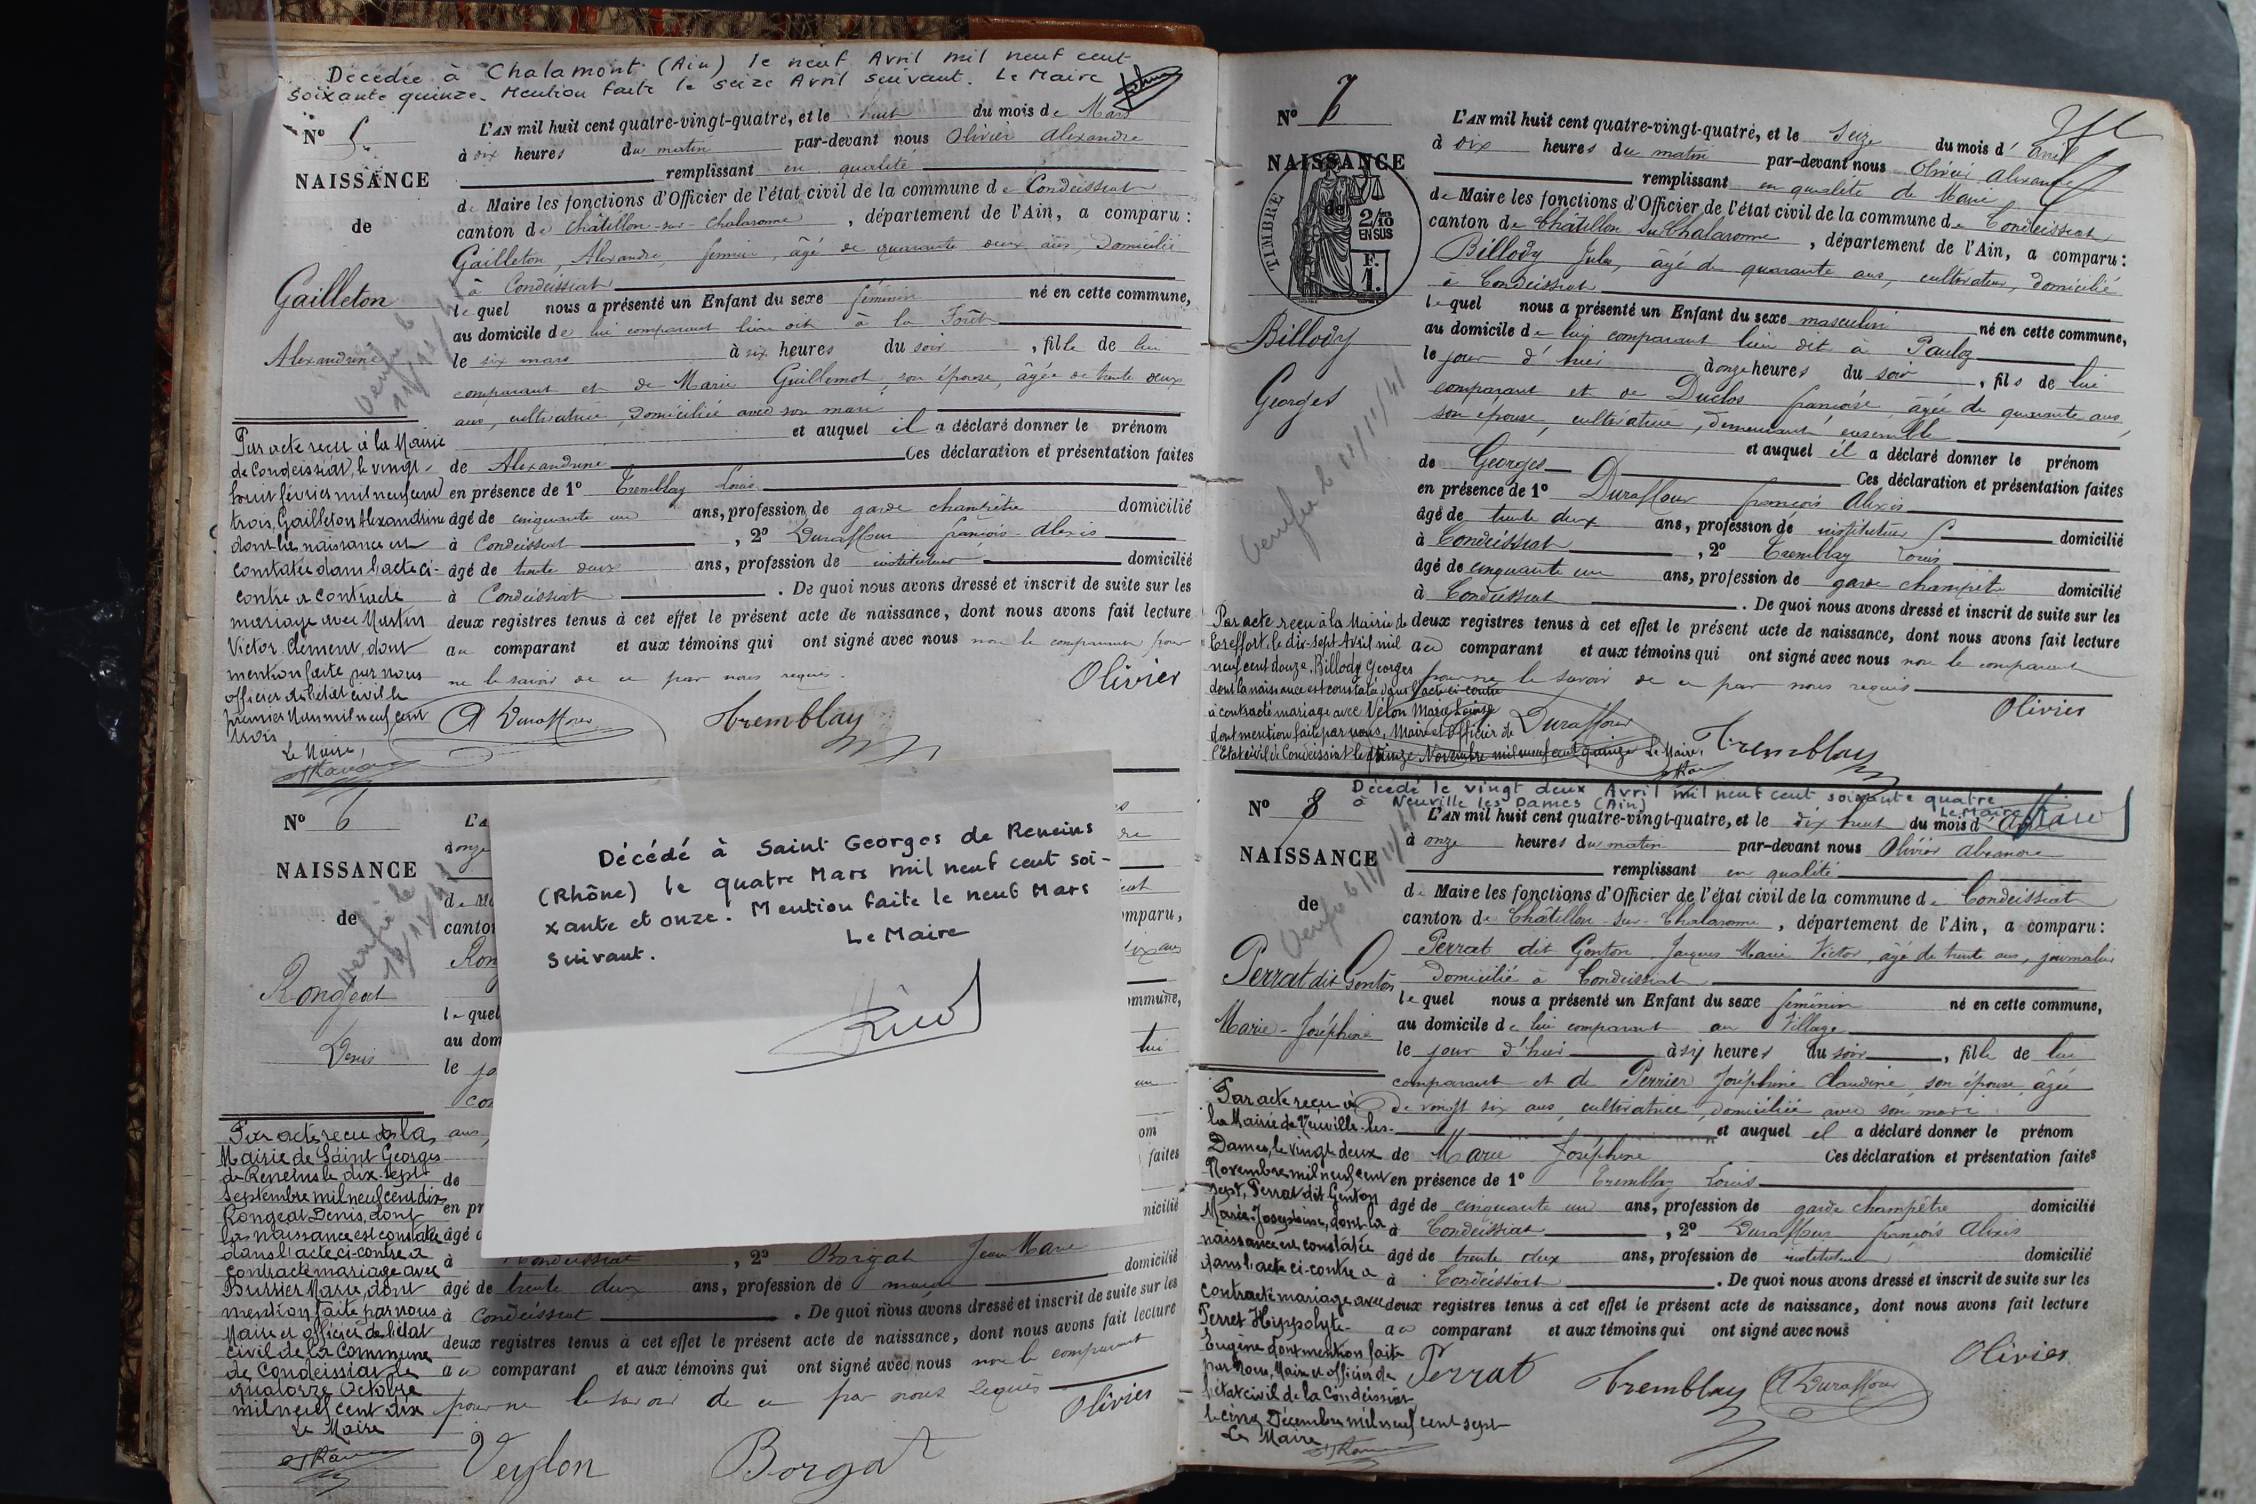 Décédée à Chalamont (Ain) le neuf Avril mil neuf cent
soixante quinze. Mention faite le seize Avril suivant. Le Maire
N° 5
NAISSANCE
de
Gailleton
Alexandrine
L'AN mil huit cent quatre-vingt-quatre, et le huit du mois de Mars
à dix heures du matin par-devant nous Olivier Alexandre
remplissant en qualité
de Maire les fonctions d'Officier de l'état civil de la commune de Condeissiat
canton de Châtillon-sur-Chalaronne, département de l'Ain, a comparu :
Gailleton, Alexandre, fermier, âgé de quarante deux ans, domicilié
à Condeissiat
lequel nous a présenté un Enfant du sexe féminin né en cette commune,
au domicile de lui comparant lieu dit à la Forêt
le six mars à six heures du soir, fille de lui
comparant et de Marie Guillemot, son épouse, âgée de trente deux
ans, cultivatrice, domiciliée avec son mari
et auquel il a déclaré donner le prénom
de Alexandrine Ces déclaration et présentation faites
en présence de 1° Tremblay Louis
âgé de cinquante un ans, profession de garde champêtre domicilié
à Condeissiat, 2° Duraffour françois-Alexis
âgé de trente deux ans, profession de instituteur domicilié
à Condeissiat. De quoi nous avons dressé et inscrit de suite sur les
deux registres tenus à cet effet le présent acte de naissance, dont nous avons fait lecture
au comparant et aux témoins qui ont signé avec nous non le comparant pour
ne le savoir de ce par nous requis.
Olivier
A Duraffour
Tremblay
Par acte reçu à la Mairie
de Condeissiat, le vingt-
huit février mil neuf cent
trois, Gailleton Alexandrine
dont la naissance est
constatée dans l'acte ci-
contre a contracté
mariage avec Martin
Victor Clément, dont
mention faite par nous
officier de l'état civil le
premier Mars mil neuf cent
trois
Le Maire,
N° 6
NAISSANCE
de
Rongeat
Denis
Décédé à Saint Georges de Reneins
(Rhône) le quatre Mars mil neuf cent soi-
xante et onze. Mention faite le neuf Mars
suivant. Le Maire
Par acte reçu à la
Mairie de Saint Georges
de Reneins le dix-sept
septembre mil neuf cent dix
Rongeat Denis, dont
la naissance est constatée
dans l'acte ci-contre a
contracté mariage avec
Marie, dont
mention faite par nous
Maire et officier de l'état
civil de la Commune
de Condeissiat le
quatorze Octobre
mil neuf cent dix
Le Maire
à Condeissiat, 2° Borgat Jean Marie
âgé de trente deux ans, profession de domicilié
à Condeissiat. De quoi nous avons dressé et inscrit de suite sur les
deux registres tenus à cet effet le présent acte de naissance, dont nous avons fait lecture
au comparant et aux témoins qui ont signé avec nous non le comparant
pour ne le savoir de ce par nous requis
Olivier
Veylon Borgat
N° 7
NAISSANCE
de
TIMBRE
2/10 EN SUS
F. 1.
Billody
Georges
L'AN mil huit cent quatre-vingt-quatre, et le seize du mois d'avril
à dix heures du matin par-devant nous Olivier Alexandre
remplissant en qualité de Maire
de Maire les fonctions d'Officier de l'état civil de la commune de Condeissiat
canton de Châtillon sur Chalaronne, département de l'Ain, a comparu :
Billody Jules, âgé de quarante ans, cultivateur, domicilié
à Condeissiat
lequel nous a présenté un Enfant du sexe masculin né en cette commune,
au domicile de lui comparant lieu dit à Pauloz
le jour d'hier à onze heures du soir, fils de lui
comparant et de Duclos françoise, âgée de quarante ans,
son épouse, cultivatrice, demeurant ensemble
et auquel il a déclaré donner le prénom
de Georges Ces déclaration et présentation faites
en présence de 1° Duraffour françois Alexis
âgé de trente deux ans, profession de instituteur domicilié
à Condeissiat, 2° Tremblay Louis
âgé de cinquante un ans, profession de garde champêtre domicilié
à Condeissiat. De quoi nous avons dressé et inscrit de suite sur les
deux registres tenus à cet effet le présent acte de naissance, dont nous avons fait lecture
au comparant et aux témoins qui ont signé avec nous non le comparant
pour ne le savoir de ce par nous requis
Olivier
Duraffour
Tremblay
Vérifié le 11/11/41
Par acte reçu à la Mairie de
Treffort, le dix-sept Avril mil
neuf cent douze, Billody Georges
dont la naissance est constatée dans l'acte ci-contre
a contracté mariage avec Velon Marie Louise
dont mention faite par nous, Maire et Officier de
l'Etat civil de Condeissiat le quinze Novembre mil neuf cent quinze Le Maire,
Décédé le vingt deux Avril mil neuf cent soixante quatre
à Neuville les Dames (Ain) Le Maire
N° 8
NAISSANCE
de
Perrat dit Gonton
Marie-Joséphine
L'AN mil huit cent quatre-vingt-quatre, et le dix huit du mois d'Avril
à onze heures du matin par-devant nous Olivier Alexandre
remplissant en qualité
de Maire les fonctions d'Officier de l'état civil de la commune de Condeissiat
canton de Châtillon-sur-Chalaronne, département de l'Ain, a comparu :
Perrat dit Gonton Jacques Marie Victor, âgé de trente ans, journalier
domicilié à Condeissiat
lequel nous a présenté un Enfant du sexe féminin né en cette commune,
au domicile de lui comparant au Village
le jour d'hier à six heures du soir, fille de lui
comparant et de Perrier Joséphine Claudine, son épouse, âgée
de vingt six ans, cultivatrice, domiciliée avec son mari
et auquel il a déclaré donner le prénom
de Marie Joséphine Ces déclaration et présentation faites
en présence de 1° Tremblay Louis
âgé de cinquante un ans, profession de garde champêtre domicilié
à Condeissiat, 2° Duraffour françois Alexis
âgé de trente deux ans, profession de instituteur domicilié
à Condeissiat. De quoi nous avons dressé et inscrit de suite sur les
deux registres tenus à cet effet le présent acte de naissance, dont nous avons fait lecture
au comparant et aux témoins qui ont signé avec nous
Olivier
Perrat Tremblay A Duraffour
Par acte reçu à
la Mairie de Neuville-les-
Dames, le vingt deux
Novembre mil neuf cent
sept, Perrat dit Gonton
Marie-Joséphine, dont la
naissance est constatée
dans l'acte ci-contre a
contracté mariage avec
Perret Hippolyte-
Eugène dont mention faite
par Nous, Maire et officier de
l'état civil de la Condeissiat
le cinq Décembre mil neuf cent sept
Le Maire